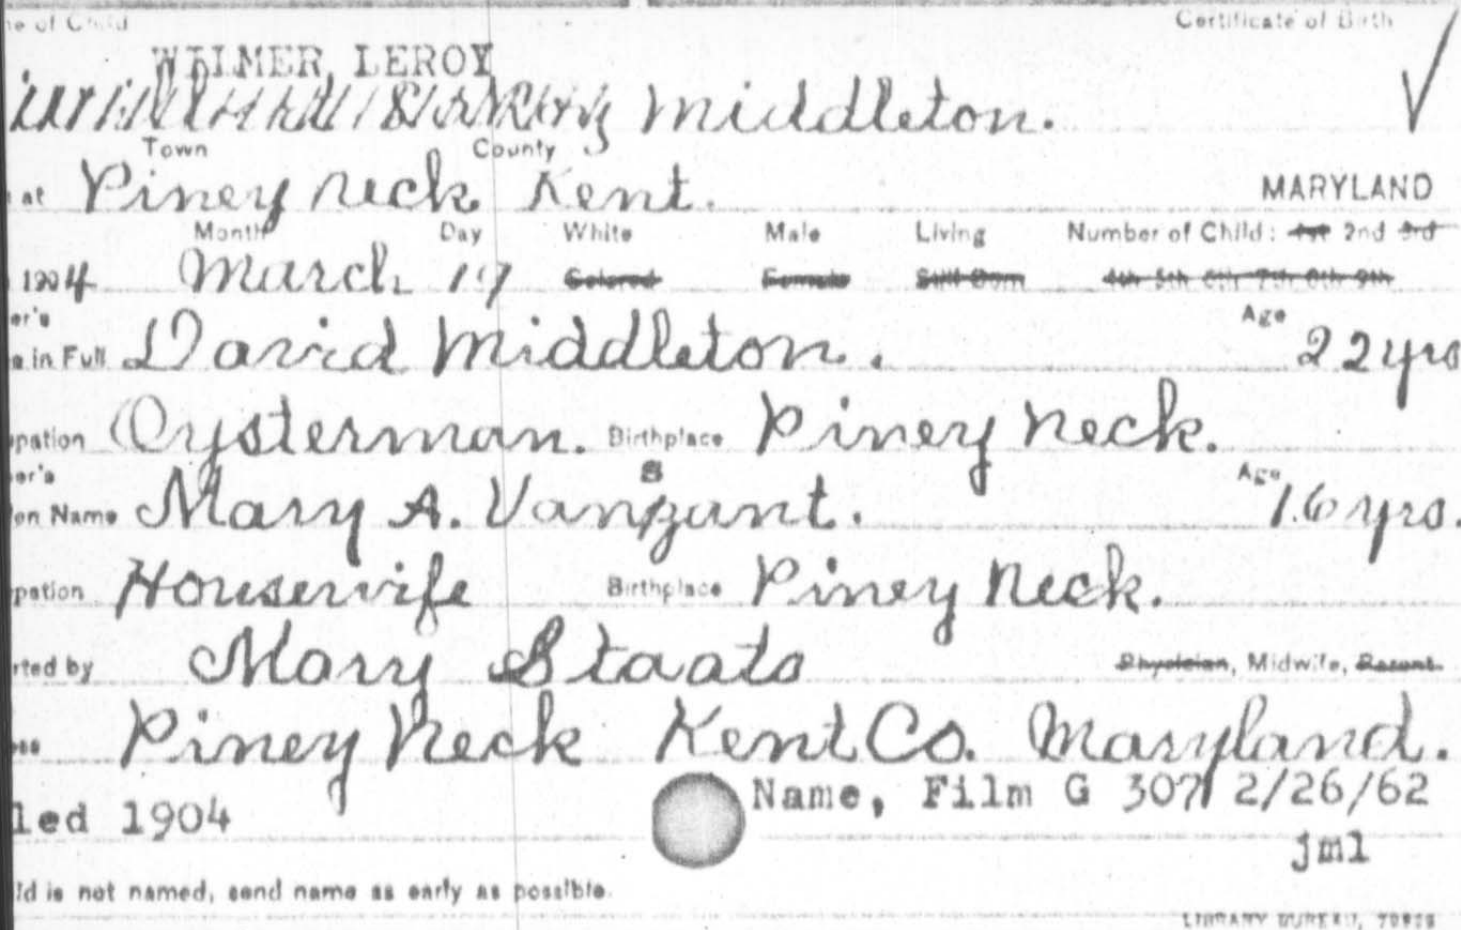 e of Child Certificate of Birth
WILMER LEROY
Middleton.
Town County
at Piney Neck Kent. MARYLAND
Month Day White Male Living Number of Child: 1st 2nd 3rd
1904 March 19 Colored Female Still Born 4th 5th 6th 7th 8th 9th
er's Age
e in Full David Middleton. 22 yrs
pation Oysterman. Birthplace Piney Neck.
er's s Age
en Name Mary A. Vanzunt. 16 yrs.
pation Housewife Birthplace Piney Neck.
rted by Mary Staats Physician, Midwife, Parent
ess Piney Neck Kent Co. Maryland.
led 1904 Name, Film G 307 2/26/62
jml
ld is not named, send name as early as possible.
LIBRARY BUREAU,